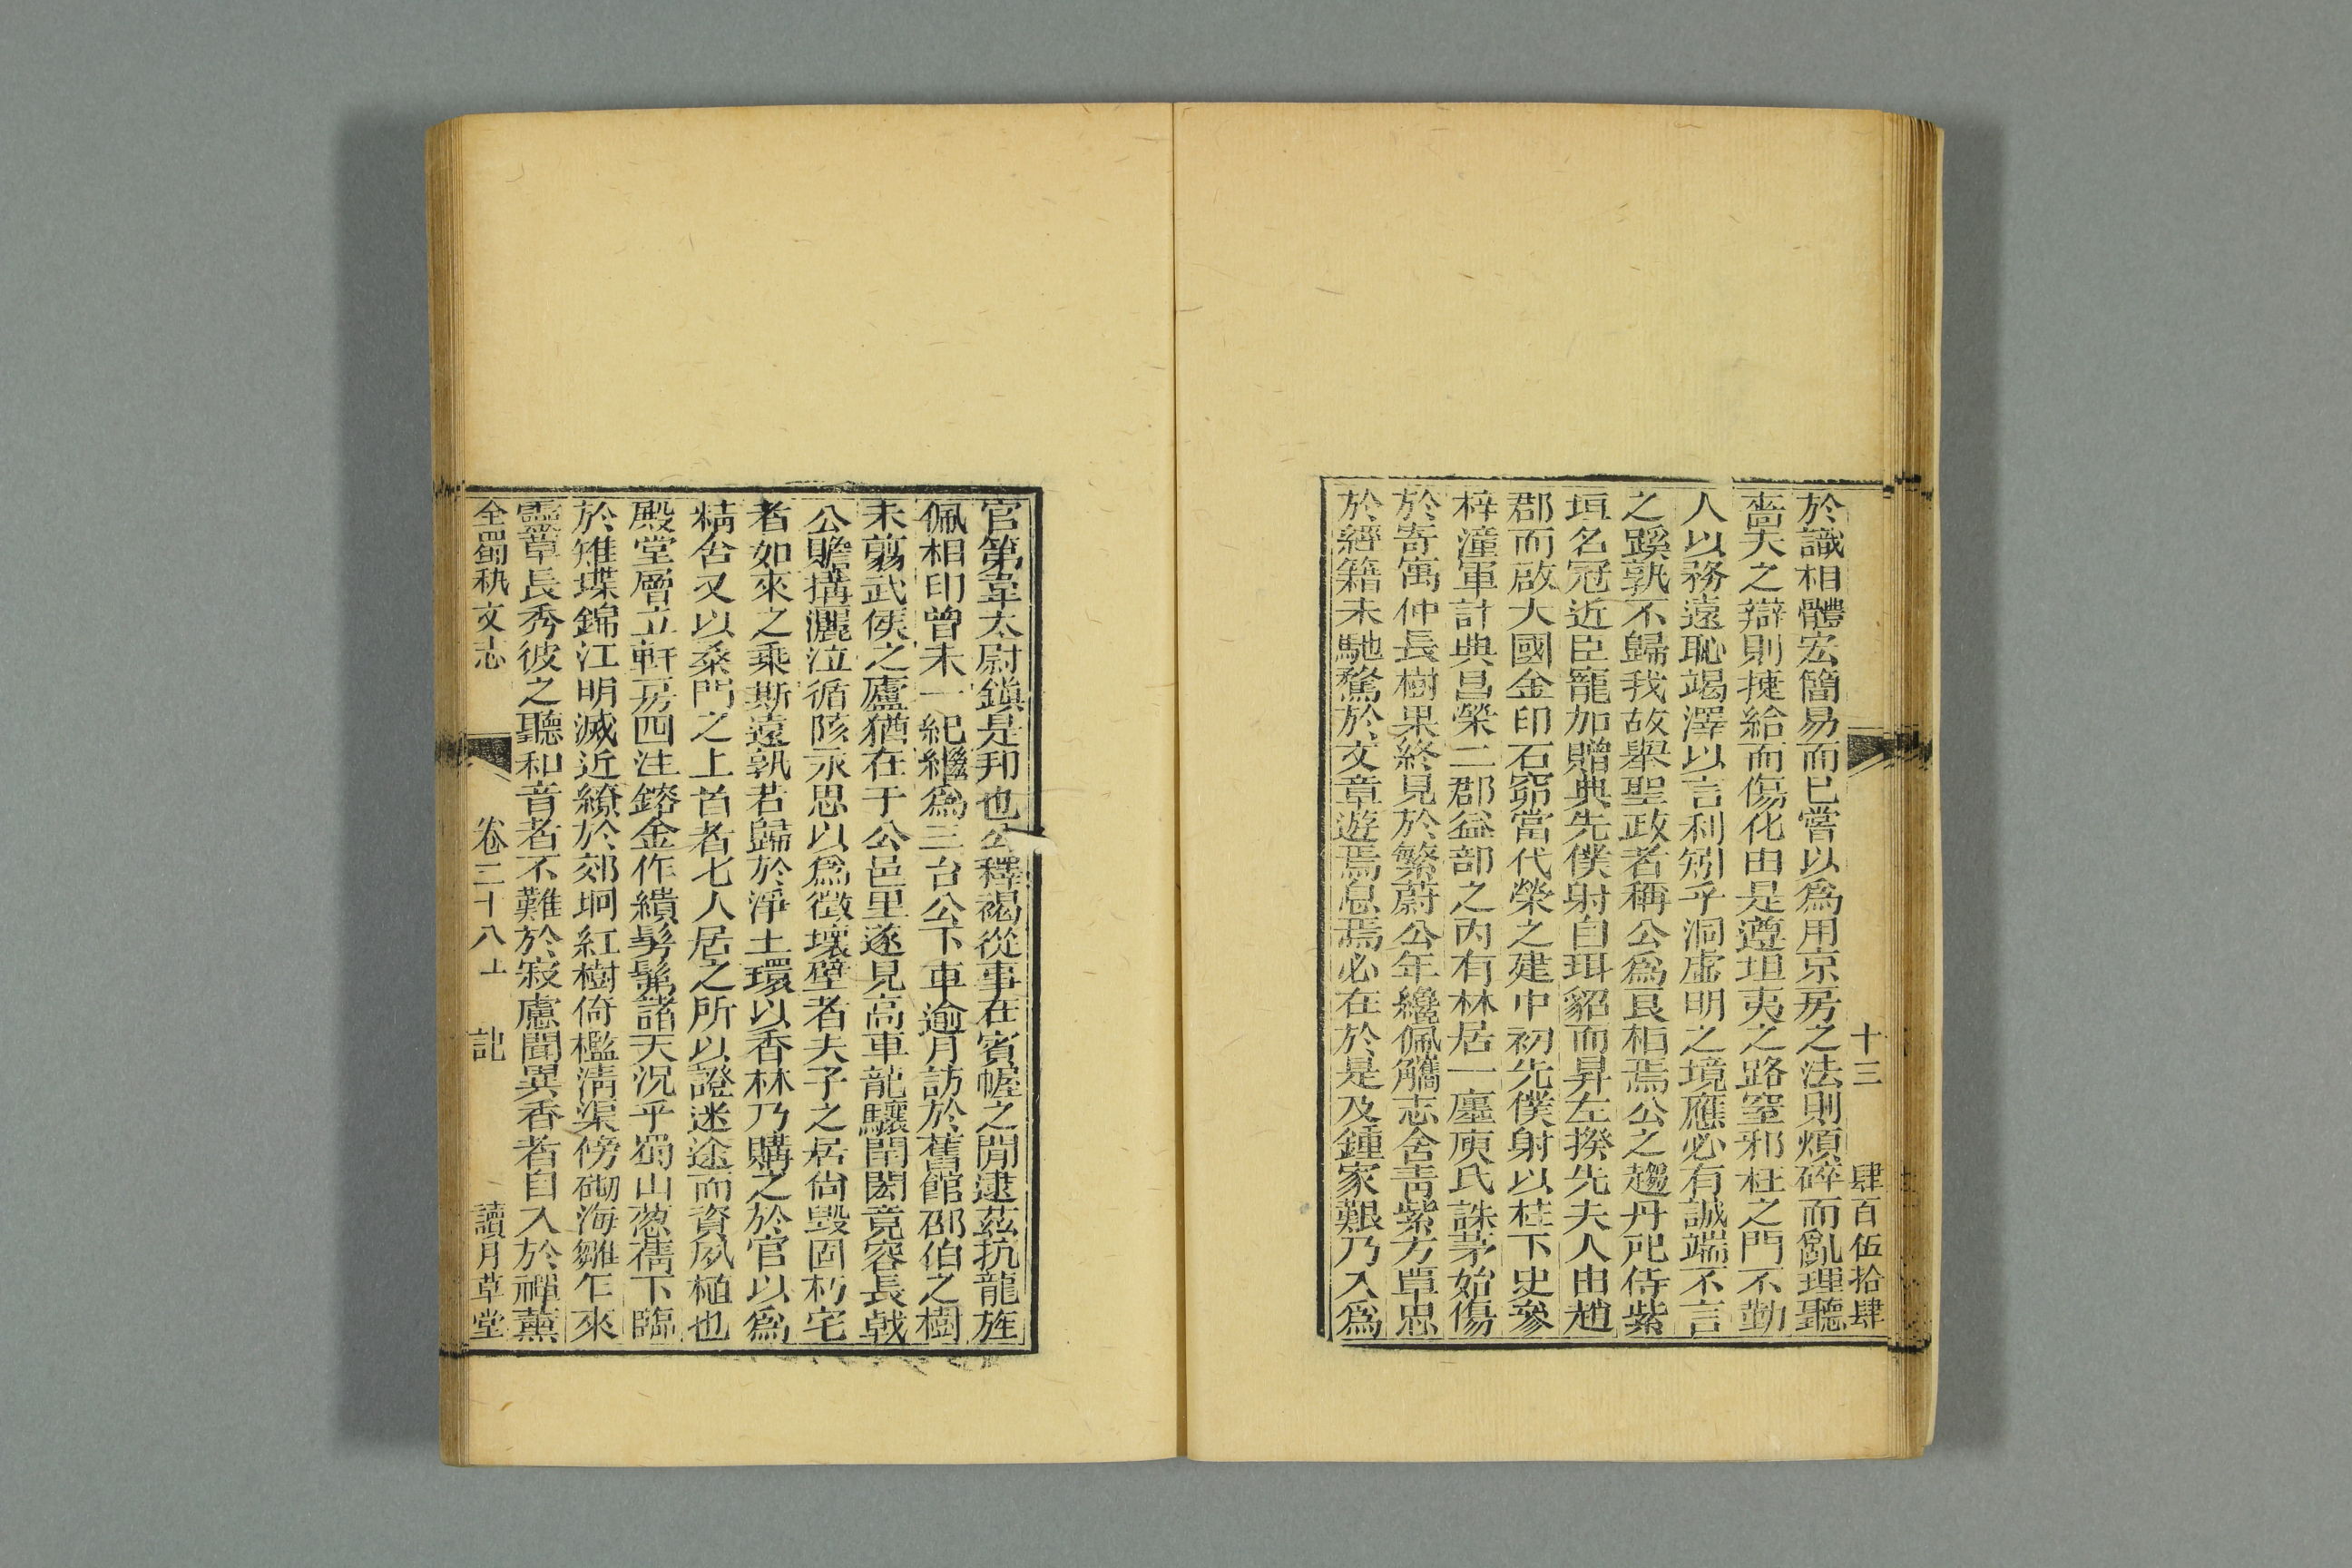 十三　肆百伍拾肆
於識相體宏簡易而已嘗以爲用京房之法則煩碎而亂理聽
嗇夫之辯則捷給而傷化由是遵坦夷之路窒邪枉之門不勤
人以務遠恥竭澤以言利矧乎洞虛明之境應必有誠端不言
之蹊孰不歸我故舉聖政者稱公爲艮栢焉公之趨丹戺侍紫
垣名冠近臣寵加贈典先僕射自珥貂而昇左揆先夫人由趙
郡而啟大國金印石窌當代榮之建中初先僕射以桂下史參
梓潼軍計典昌榮二郡益部之丙有林居一廛庾氏誅茅始傷
於寄寓仲長樹果終見於繁蔚公年纔佩觿志舍靑紫方覃思
於經籍未馳騖於文章遊焉息焉必在於是及鍾家艱乃入爲
官第韋太尉鎮是邦也公釋褐從事在賓幄之閒逮茲抗龍旌
佩相印曾未一紀繼爲三台公下車逾月訪於舊館邵伯之樹
未翦武侯之廬猶在于公邑里遂見高車龍驤閈閎竟容長戟
公瞻搆灑泣循陔永思以爲徵壞壁者夫子之居尙毀固朽宅
者如來之乘斯遠孰若歸於淨土環以香林乃購之於官以爲
精舍又以桑門之上首者七人居之所以證迷途而資夙植也
殿堂層立軒房四注鎔金作繢髣髴諸天況乎蜀山蔥蒨下臨
於雉堞錦江明滅近繚於郊坰紅樹倚檻淸渠傍砌海雛乍來
靈草長秀彼之聽和音者不難於寂慮聞異香者自入於禪薰
全蜀秇文志　卷三十八上　記　讀月草堂